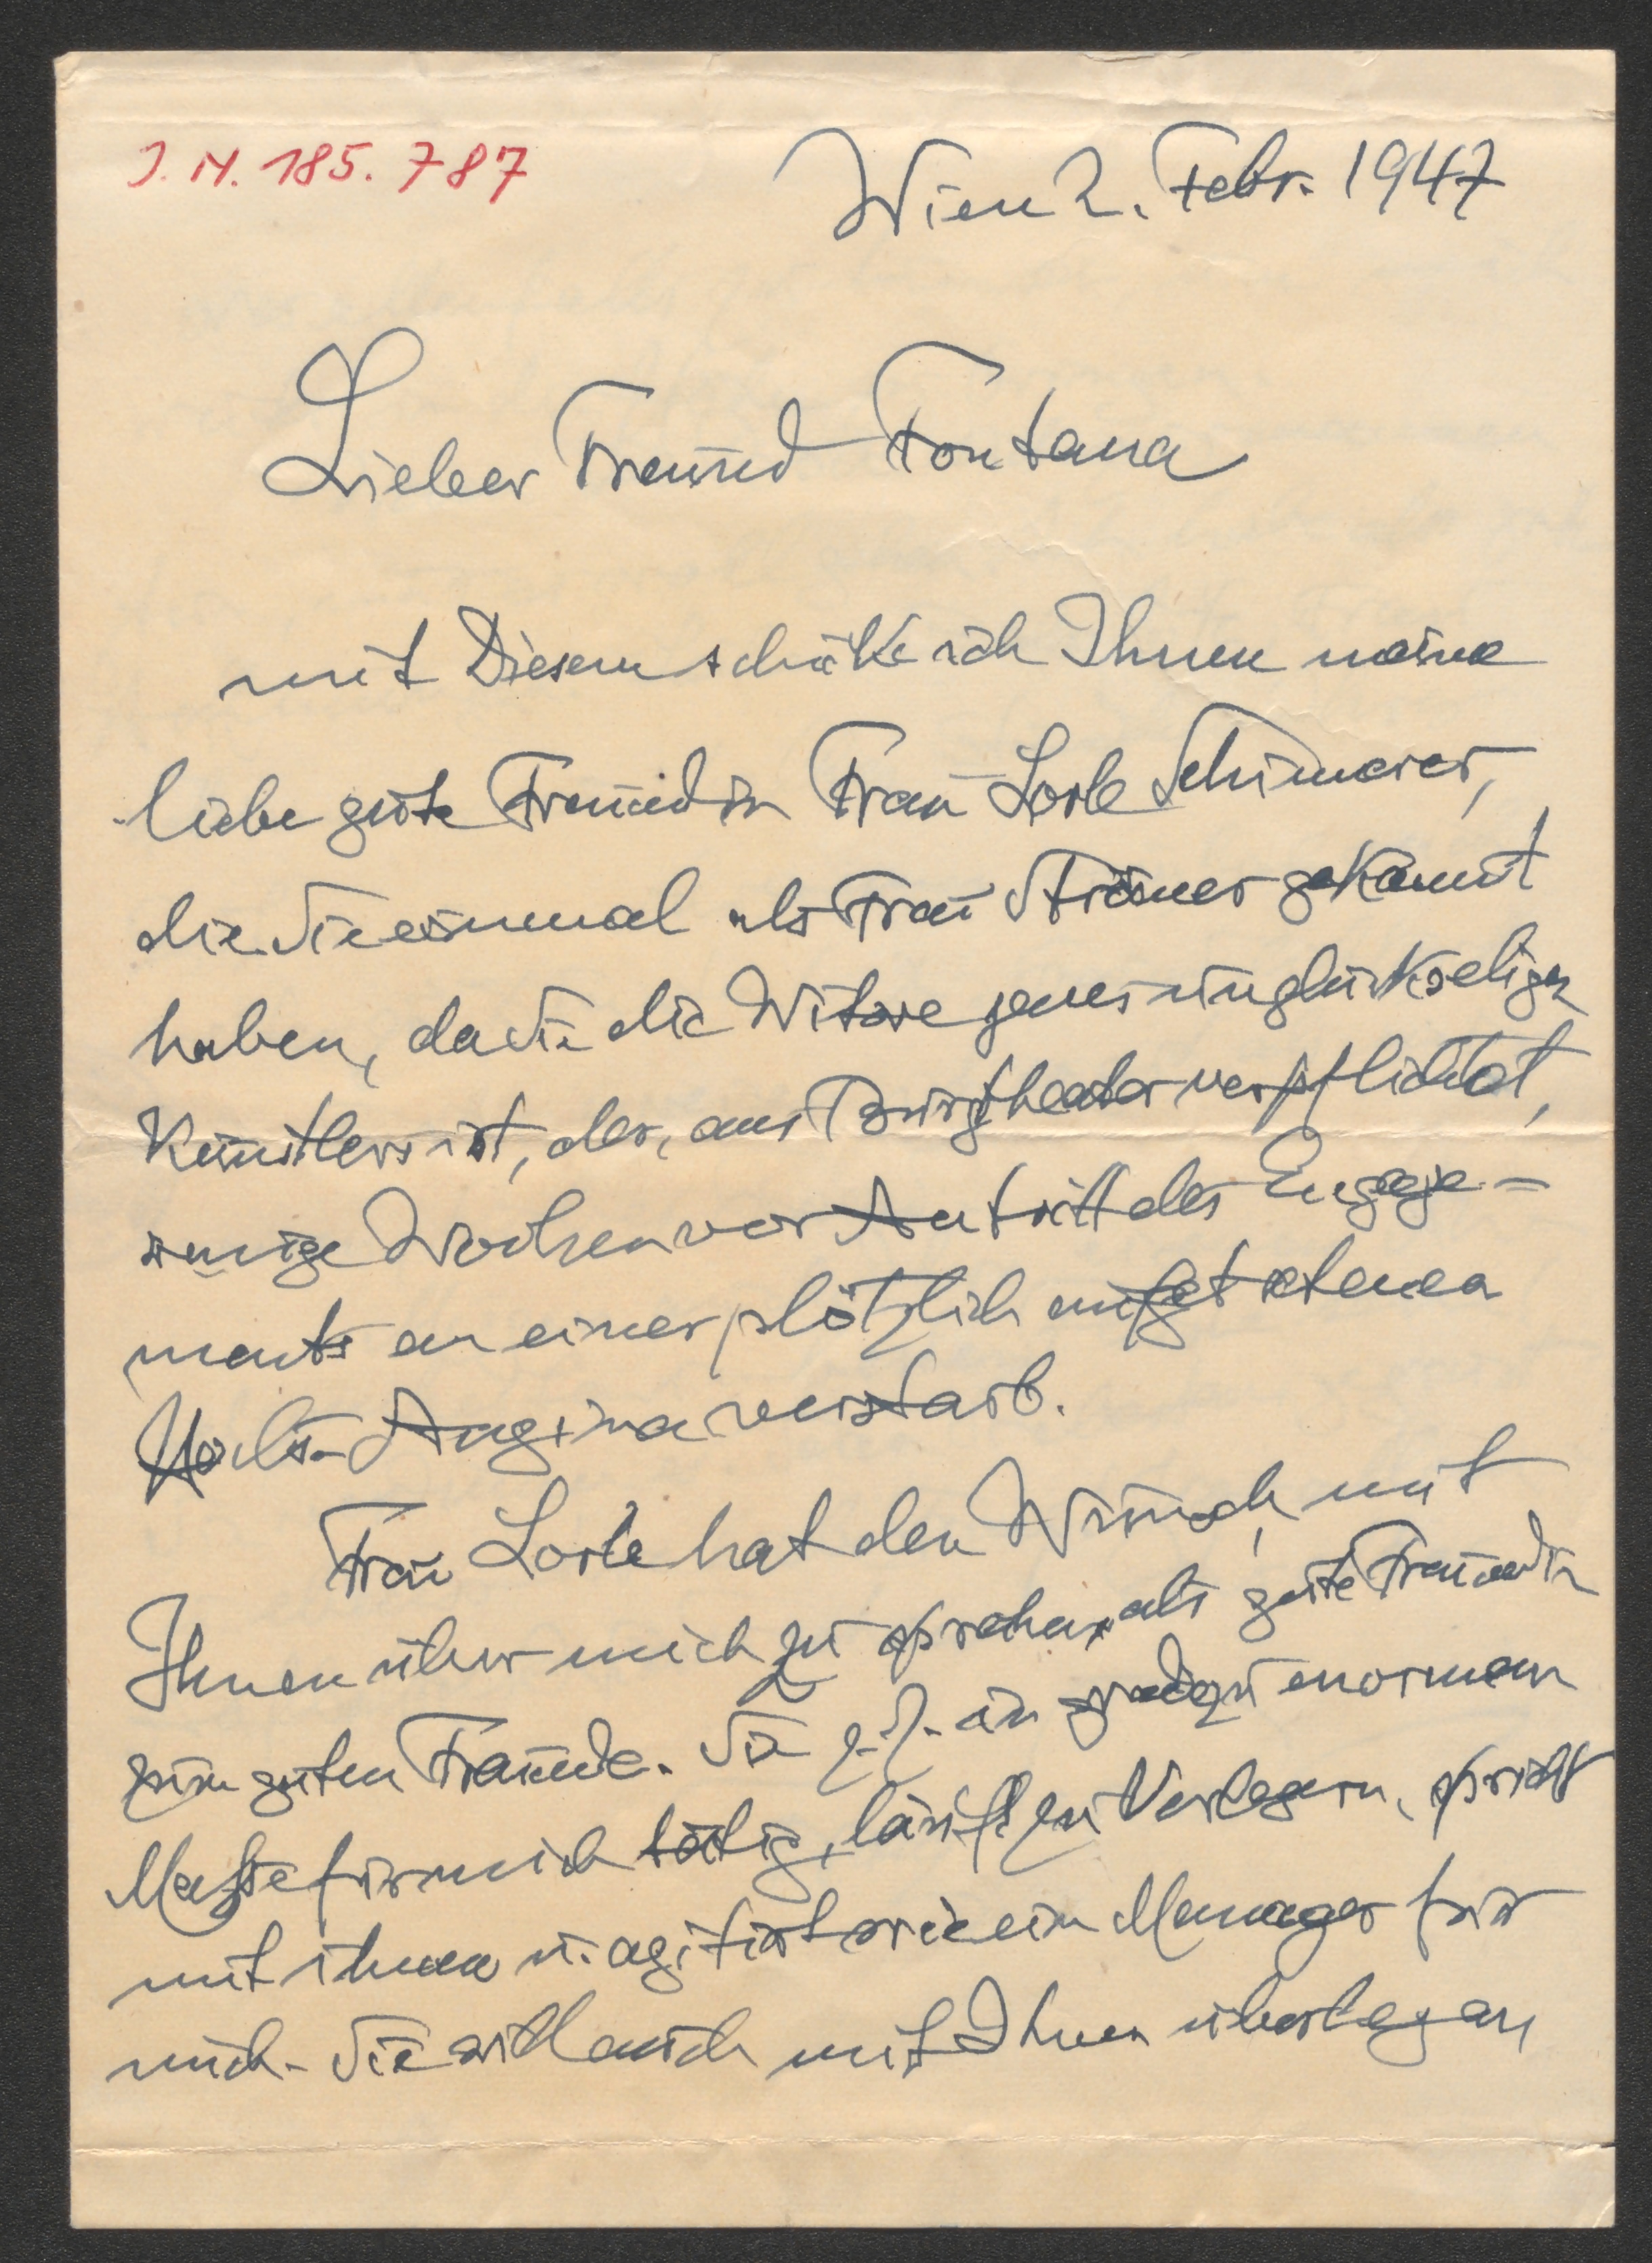 J.N. 185.787
Wien 2. Febr. 1947
Lieber Freund Fontana
mit Diesem schicke ich Ihnen meine
liebe gute Freundin Frau Lorle Schimerer,
die Sie einmal als Frau gekannt
haben, da Sie die Witwe jenes unglückseligen
Künstlers ist, der, ans Burgtheater verpflichtet,
einige Wochen vor Antritt des Engage-
ments an einer plötzlich aufgetretenen
Angina verstarb.
Frau Lorle hat den Wunsch, mit
Ihnen über mich zu sprechen, als gute Freundin
zum guten Freunde. Sie z.Z. in gradezu enormem
Maße für mich tätig, läuft zu Verlegern, spricht
mit ihnen u. agitirt wie ein Manager für
mich. Sie will auch mit Ihnen überlegen,